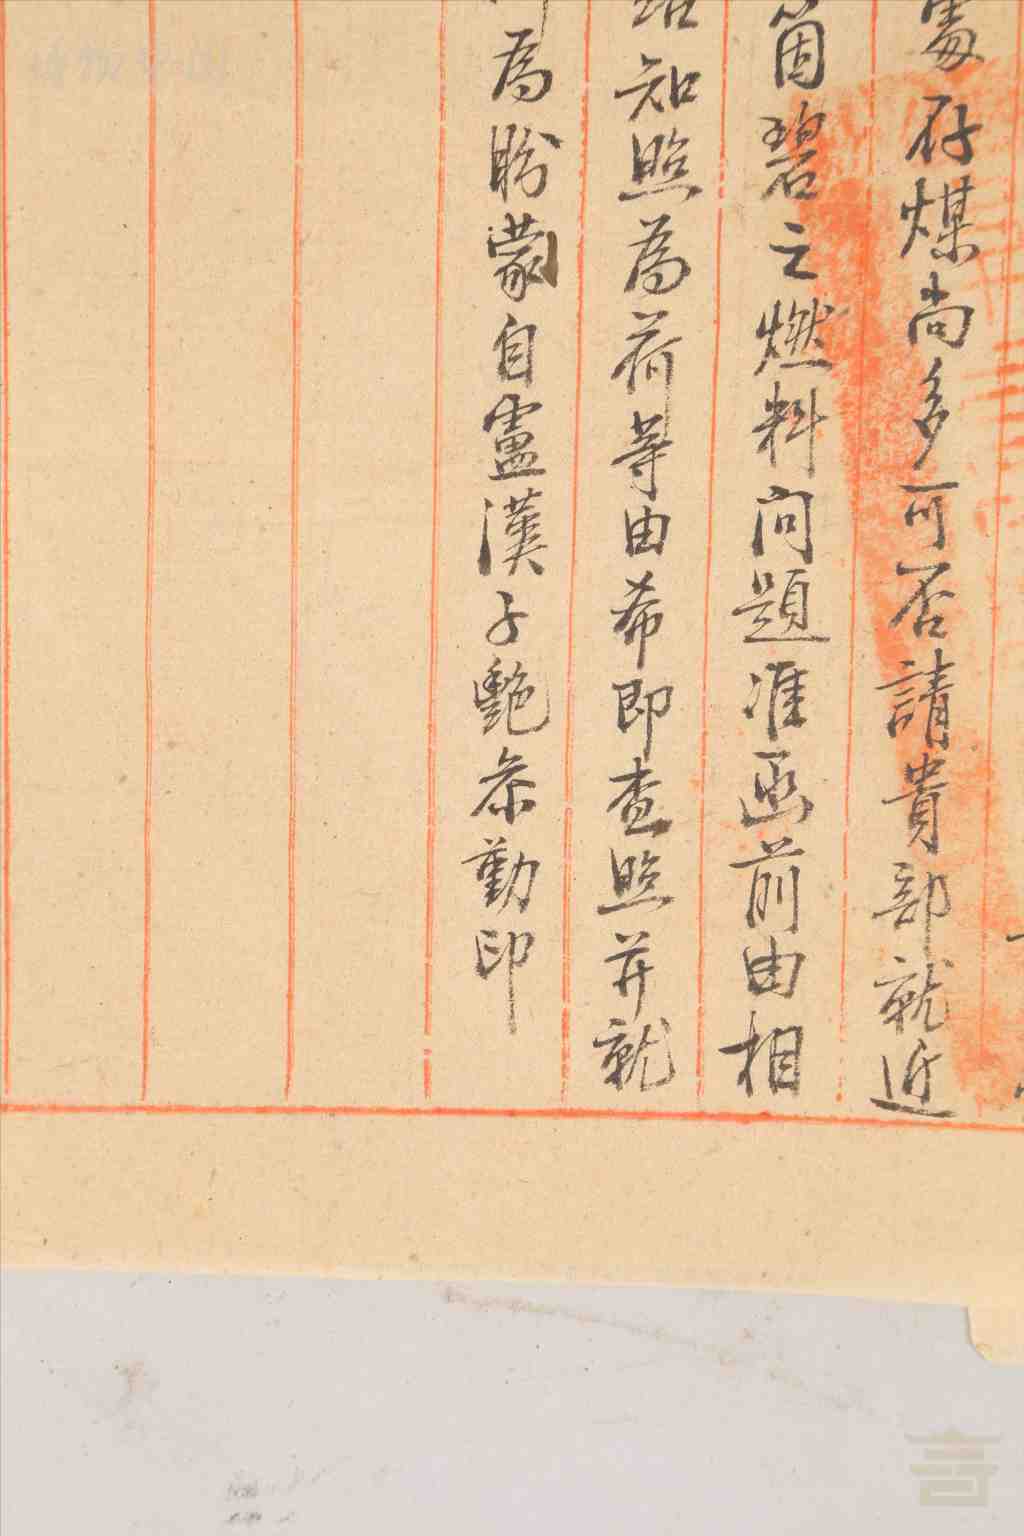 存煤尚多可否請貴部就近
箇碧之燃料问題准函前由相
知照為荷等由希即查照并就
為盼蒙自盧漢子艷叅勤印